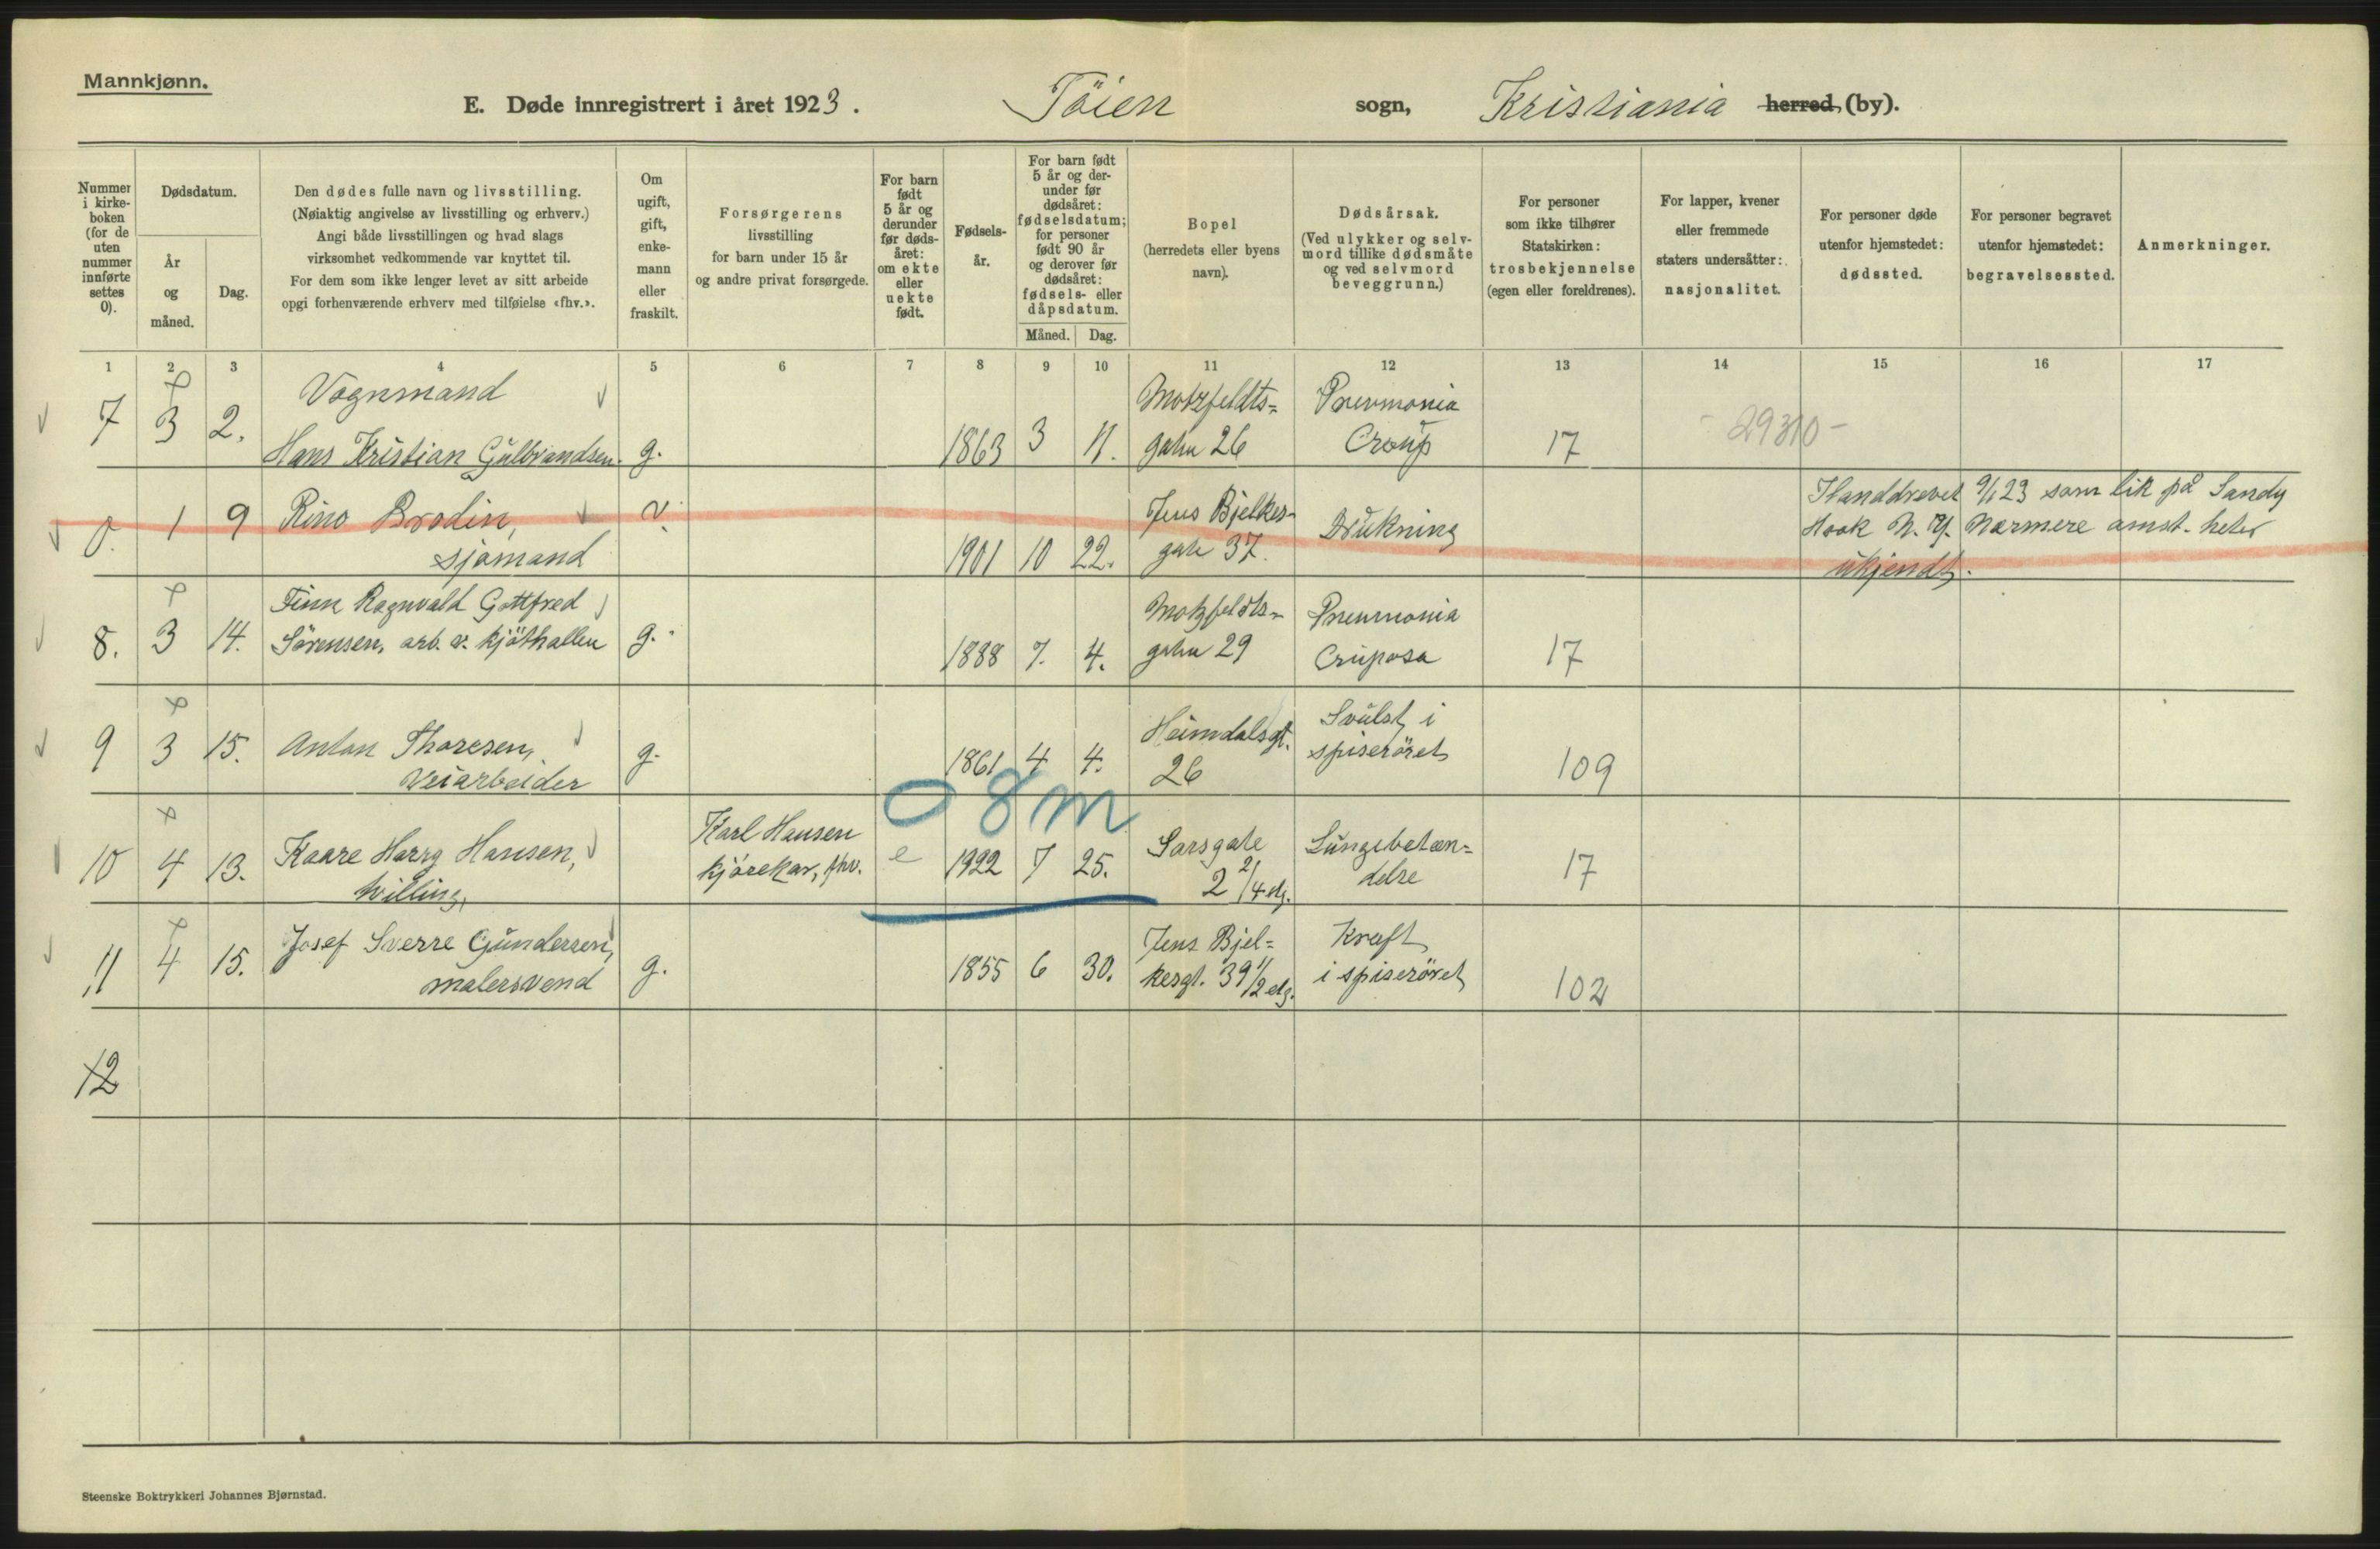 Mannkjønn.
E. Døde innregistrert i året 1923. Töien sogn, Kristiania herred (by).
Nummer i kirke-boken (for de uten nummer innførte settes 0).
Dødsdatum.
År og måned.
Dag.
Den dødes fulle navn og livsstilling.
(Nøiaktig angivelse av livsstilling og erhverv.)
Angi både livsstillingen og hvad slags
virksomhet vedkommende var knyttet til.
For dem som ikke lenger levet av sitt arbeide
opgi forhenværende erhverv med tilføielse «fhv.».
Om ugift, gift, enke-mann eller fraskilt.
Forsørgerens
livsstilling
for barn under 15 år
og andre privat forsørgede.
For barn født 5 år og derunder før døds-året: om ekte eller uekte født.
Fødsels-år.
For barn født 5 år og der-under før dødsåret: fødselsdatum; for personer født 90 år og derover før dødsåret: fødsels- eller dåpsdatum.
Måned. Dag.
Bopel
(herredets eller byens navn).
Dødsårsak.
(Ved ulykker og selv-mord tillike dødsmåte og ved selvmord beveggrunn.)
For personer
som ikke tilhører
Statskirken:
trosbekjennelse
(egen eller foreldrenes).
For lapper, kvener
eller fremmede
staters undersåtter:
nasjonalitet.
For personer døde
utenfor hjemstedet:
dødssted.
For personer begravet
utenfor hjemstedet:
begravelsessted.
Anmerkninger.
1 2 3 4 5 6 7 8 9 10 11 12 13 14 15 16 17
7 3 2. Vognmand
Hans Kristian Gulbrandsen. g. 1863 3 11. Motzfeldts=
gaten 26 Pnevmonia
Croup 17 - 29310 -
0. 1 9 Rino Brodin,
sjømand 1901 10 22. Jens Bjelkes-
gate 37. Drukning Ilanddrevet 9/1 23 som lik på Sandy
Hook N. Y. Nærmere omst. heter
ukjendt.
8. 3 14. Finn Ragnvald Gottfred
Sörensen, arb. v. kjöthallen g. 1888 7. 4. Motzfeldts-
gaten 29 Pneumonia
Cruposa 17
9 3 15. Anton Thoresen,
Veiarbeider g. 1861 4 4. Heimdalsgt.
26 Svulst i
spiseröret 109
0 8m
10 4 13. Kaare Harry Hansen,
tvilling, Karl Hansen
kjörekar, fhv. e 1922 7 25. Sarsgate
2 2/4 etg. Lungebetæn=
delse 17
11 4 15. Josef Sverre Gundersen,
malersvend g. 1855 6 30. Jens Bjel=
kesgt. 39 1/2 etg. Kræft
i spiseröret 102
12
Steenske Boktrykkeri Johannes Bjørnstad.